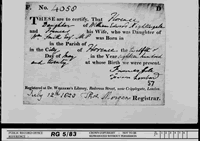 No. 4058
THESE are to certify, That Florence
Daughter of William Edward Nightingale
and Frances his Wife, who was Daughter of
Wm. Smith Esq. M.P. was Born in
in the Parish of
in the City of Florence the Twelfth
Day of May in the Year eighteen hundred
and twenty at whose Birth we were present.
Registered at Dr. Williams's Library, Redcross Street, near Cripplegate, London.
July 12th Thos. Morgan Registrar.
PUBLIC RECORD OFFICE
RG 5/83
COPYRIGHT